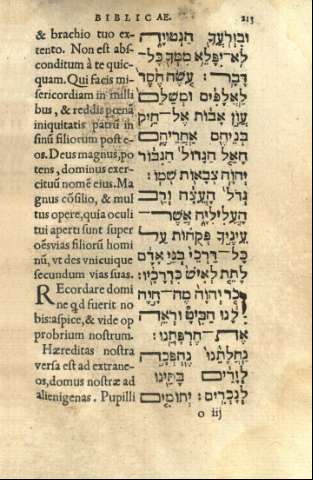 BIBLICAE. 213
& brachio tuo ex-
tento. Non est abs-
conditum à te quic-
quam. Qui facis mi-
sericordiam in milli
bus, & reddis pœnā
iniquitatis patrū in
sinū filiorum post e-
os. Deus magnus, po
tens, dominus exer-
cituū nomē eius. Ma
gnus cōsilio, & mul
tus opere, quia oculi
tui aperti sunt super
oēs vias filiorū homi
nū, vt des vnicuique
secundum vias suas.
Recordare domi
ne qd fuerit no
bis: aspice, & vide op
probrium nostrum.
Hæreditas nostra
versa est ad extrane-
os, domus nostræ ad
alienigenas. Pupilli
וּבִזְרֹעֲךָ הַנְּטוּיָה
לֹא־יִפָּלֵא מִמְּךָ כָּל־
דָּבָר׃ עֹשֶׂה חֶסֶד
לַאֲלָפִים וּמְשַׁלֵּם
עֲוֹן אָבוֹת אֶל־חֵיק
בְּנֵיהֶם אַחֲרֵיהֶם
הָאֵל הַגָּדוֹל הַגִּבּוֹר
יְהוָה צְבָאוֹת שְׁמוֹ׃
גְּדֹל הָעֵצָה וְרַב
הָעֲלִילִיָּה אֲשֶׁר־
עֵינֶיךָ פְקֻחוֹת עַל־
כָּל־דַּרְכֵי בְּנֵי אָדָם
לָתֵת לְאִישׁ כִּדְרָכָיו׃
זְכֹר יְהוָה מֶה־הָיָה
לָנוּ הַבִּיטָ וּרְאֵה
אֶת־חֶרְפָּתֵנוּ׃
נַחֲלָתֵנוּ נֶהֶפְכָה
לְזָרִים בָּתֵּינוּ
לְנָכְרִים׃ יְתוֹמִים
o iij